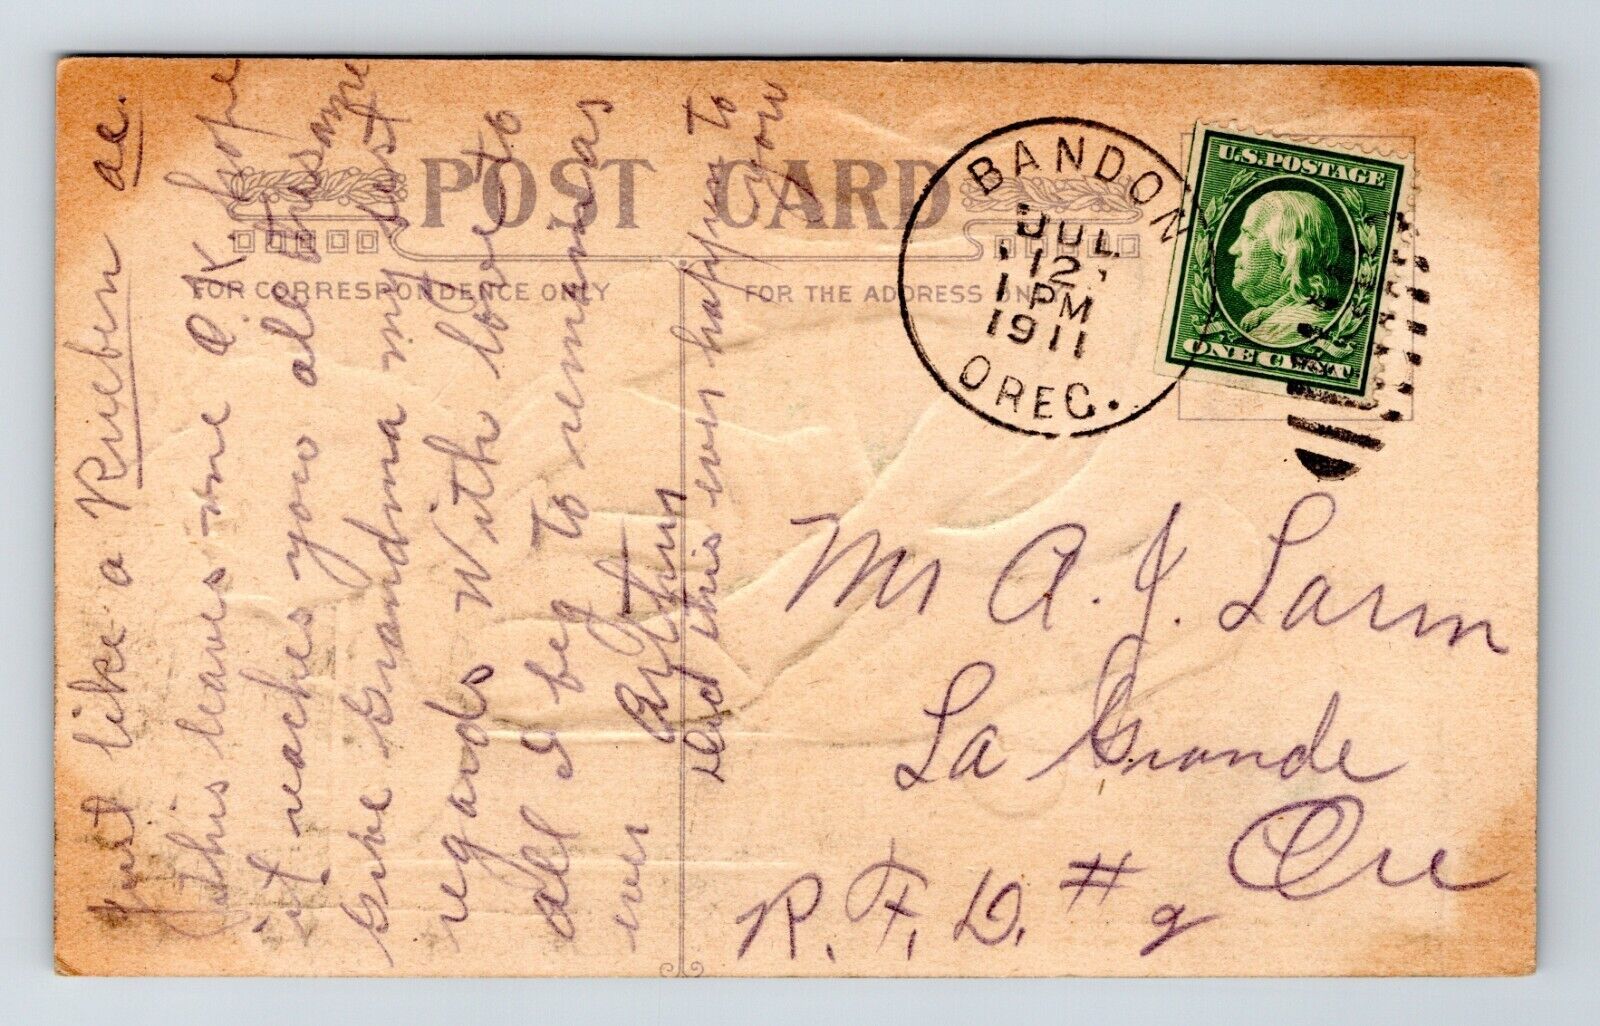 POST CARD
FOR CORRESPONDENCE ONLY
FOR THE ADDRESS ONLY
BANDON
JUL
12
1 PM
1911
OREG.
U.S. POSTAGE
ONE CENT
Just like a Rueben ae.
this leaves me O K hope
it reaches you all the same
Give Grandma my best
regards With love to
all I beg to remain as
ever Arthur
Did this ever happen to
you
Mr A. J. Larm
La Grande
Ore
R. F. D. # 2